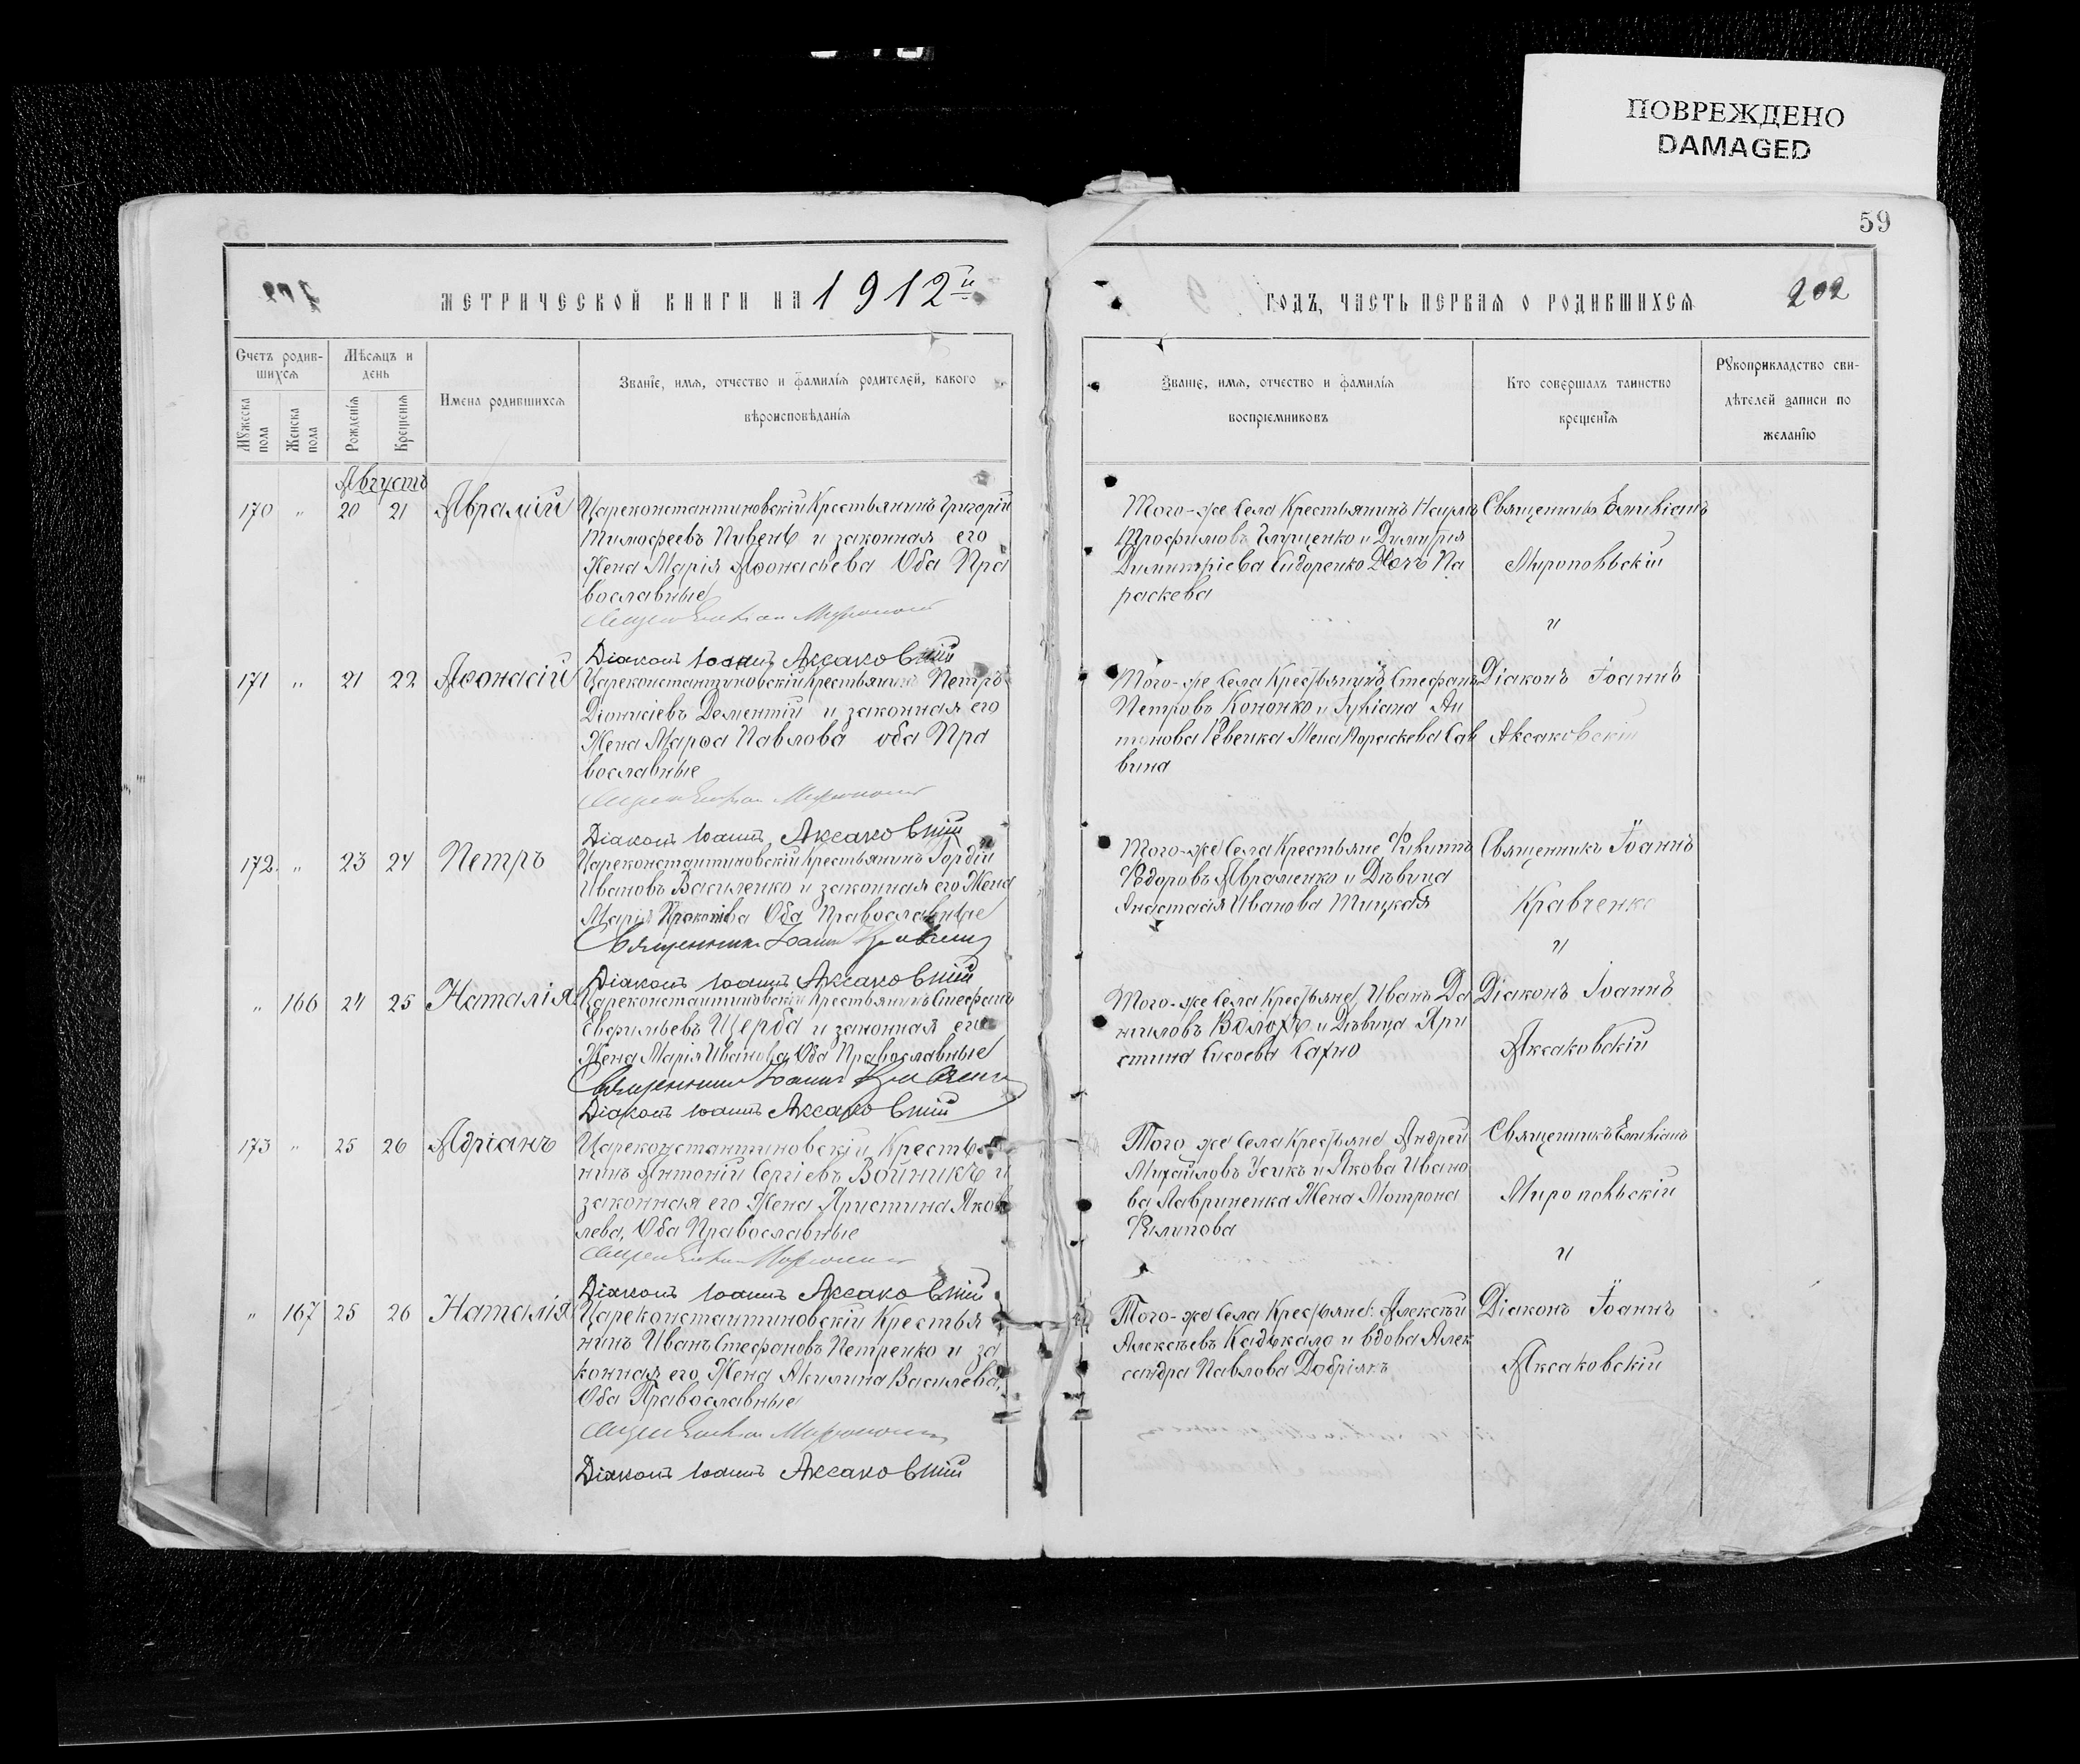 ПОВРЕЖДЕНО
DAMAGED
59
МЕТРИЧЕСКОЙ КНИГИ НА 1912й
ГОДЪ, ЧАСТЬ ПЕРВАЯ О РОДИВШИХСЯ
202
Счетъ родив-
шихся
Мѣсяцъ и
день
Имена родившихся
Званіе, имя, отчество и фамилія родителей, какого
вѣроисповѣданія
Мужеска пола
Женска пола
Рожденія
Крещенія
Званіе, имя, отчество и фамилія
воспріемниковъ
Кто совершалъ таинство
крещенія
Рукоприкладство сви-
дѣтелей записи по
желанію
Августъ
170 " 20 21 Аврамій
Цареконстантиновскій Крестьянинъ Григорій
Тимофеевъ Пивень и законная его
Жена Марія Аѳонасьева Оба Пра
вославные
Діаконъ Іоаннъ Аксаковскій
Того-же Села Крестьянинъ Наумъ
Трофимовъ Глущенко и Димитрія
Димитріева Сидоренко Дочь Па
раскева
Священникъ Емиліанъ
Миропольскій
"
171 " 21 22 Аѳонасій
Цареконстантиновскій Крестьянинъ Петръ
Діонисіевъ Дементій и законная его
Жена Марѳа Павлова оба Пра
вославные
Діаконъ Іоаннъ Аксаковскій
Того-же Села Крестьянинъ Стефанъ
Петровъ Кононко и Іуліана Ан
тонова Ревенка Жена Параскева Сав
вина
Діаконъ Іоаннъ
Аксаковскій
172 " 23 24 Петръ
Цареконстантиновскій Крестьянинъ Гордій
Ивановъ Василенко и законная его Жена
Марія Прокопіва Оба Православные
Священникъ Іоаннъ Кравченко
Діаконъ Іоаннъ Аксаковскій
Того-же Села Крестьяне Филиппъ
Ѳедоровъ Авраменко и Дѣвица
Анастасія Иванова Тицкая
Священникъ Іоаннъ
Кравченко
"
" 166 24 25 Наталія
Цареконстантиновскій Крестьянинъ Стефанъ
Евфимьевъ Щерба и законная его
Жена Марія Иванова, Оба Православные
Священникъ Іоаннъ Кравченко
Діаконъ Іоаннъ Аксаковскій
Того-же Села Крестьяне Иванъ Да
ниловъ Волохъ и Дѣвица Хри
стина Сысоева Сахно
Діаконъ Іоаннъ
Аксаковскій
173 " 25 26 Адріанъ
Цареконстантиновскій Крестья
нинъ Антоній Сергіевъ Войникъ и
законная его Жена Христина Яков
лева, Оба Православные
Діаконъ Іоаннъ Аксаковскій
Того же Села Крестьяне Андрей
Михайловъ Усикъ и Якова Ивано
ва Лавриненка Жена Мотрона
Филипова
Священникъ Емиліанъ
Миропольскій
"
" 167 25 26 Наталія
Цареконстантиновскій Крестья
нинъ Иванъ Стефановъ Петренко и за
конная его Жена Акилина Василева,
Оба Православные
Діаконъ Іоаннъ Аксаковскій
Того-же Села Крестьяне: Алексѣй
Алексѣевъ Кадькало и вдова Алек
сандра Павлова Добріякъ
Діаконъ Іоаннъ
Аксаковскій